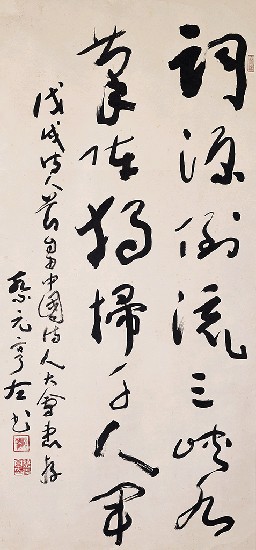 詞源倒流三峽水
筆陣獨掃千人軍
戊戌詩人節自由中國詩人大會惠存
蔡元亨左書